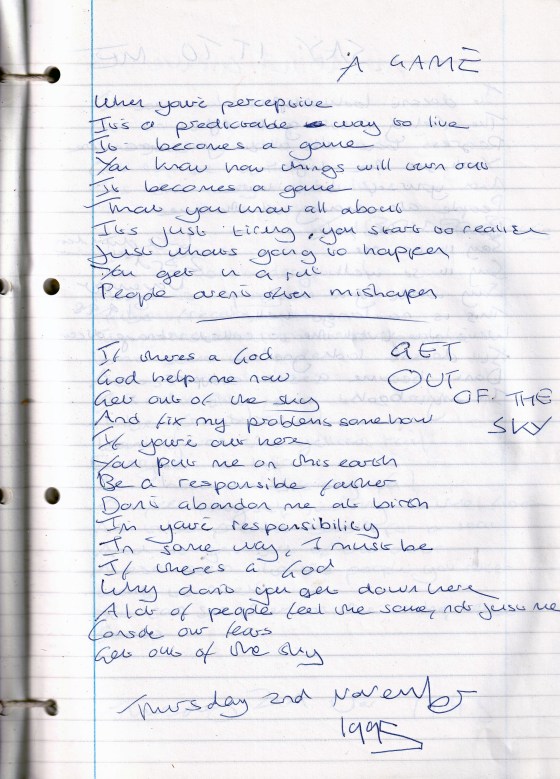 A GAME
When you're perceptive
It's a predictable way to live
It becomes a game
You know how things will turn out
It becomes a game
That you know all about
It's just timing, you start to realise
Just what's going to happen
You get in a rut
People aren't often mishapen
If there's a God
God help me now
Get out of the sky
And fix my problems somehow
If you're out here
You put me on this earth
Be a responsible father
Don't abandon me at birth
I'm your responsibility
In some way, I must be
If there's a God
Why don't you get down here
A lot of people feel the same, not just me
Console our fears
Get out of the sky
GET
OUT
OF THE
SKY
Thursday 2nd November
1995